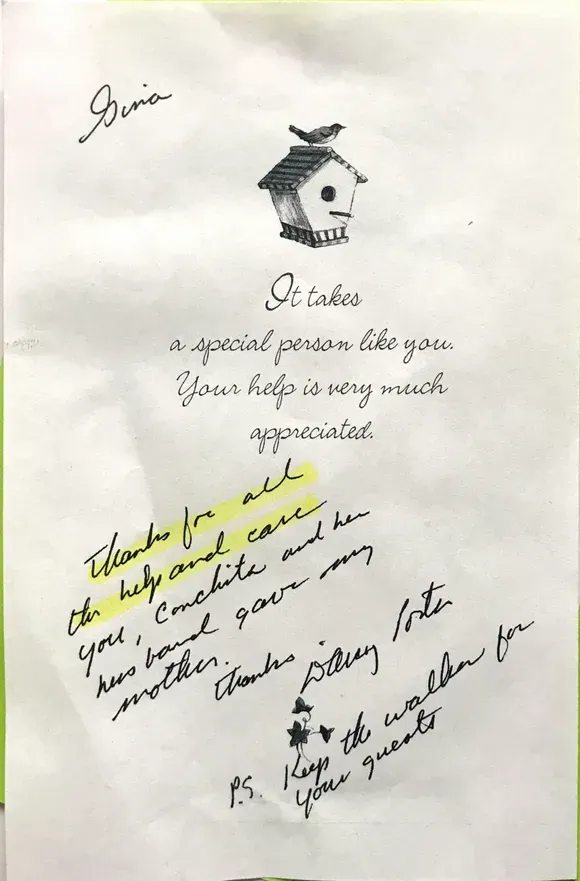 Gina
It takes
a special person like you.
Your help is very much
appreciated.
Thanks for all
the help and care
you, Conchita and her
husband gave my
mother.
Thanks
Porter
P.S. Keep the walker for
your guests